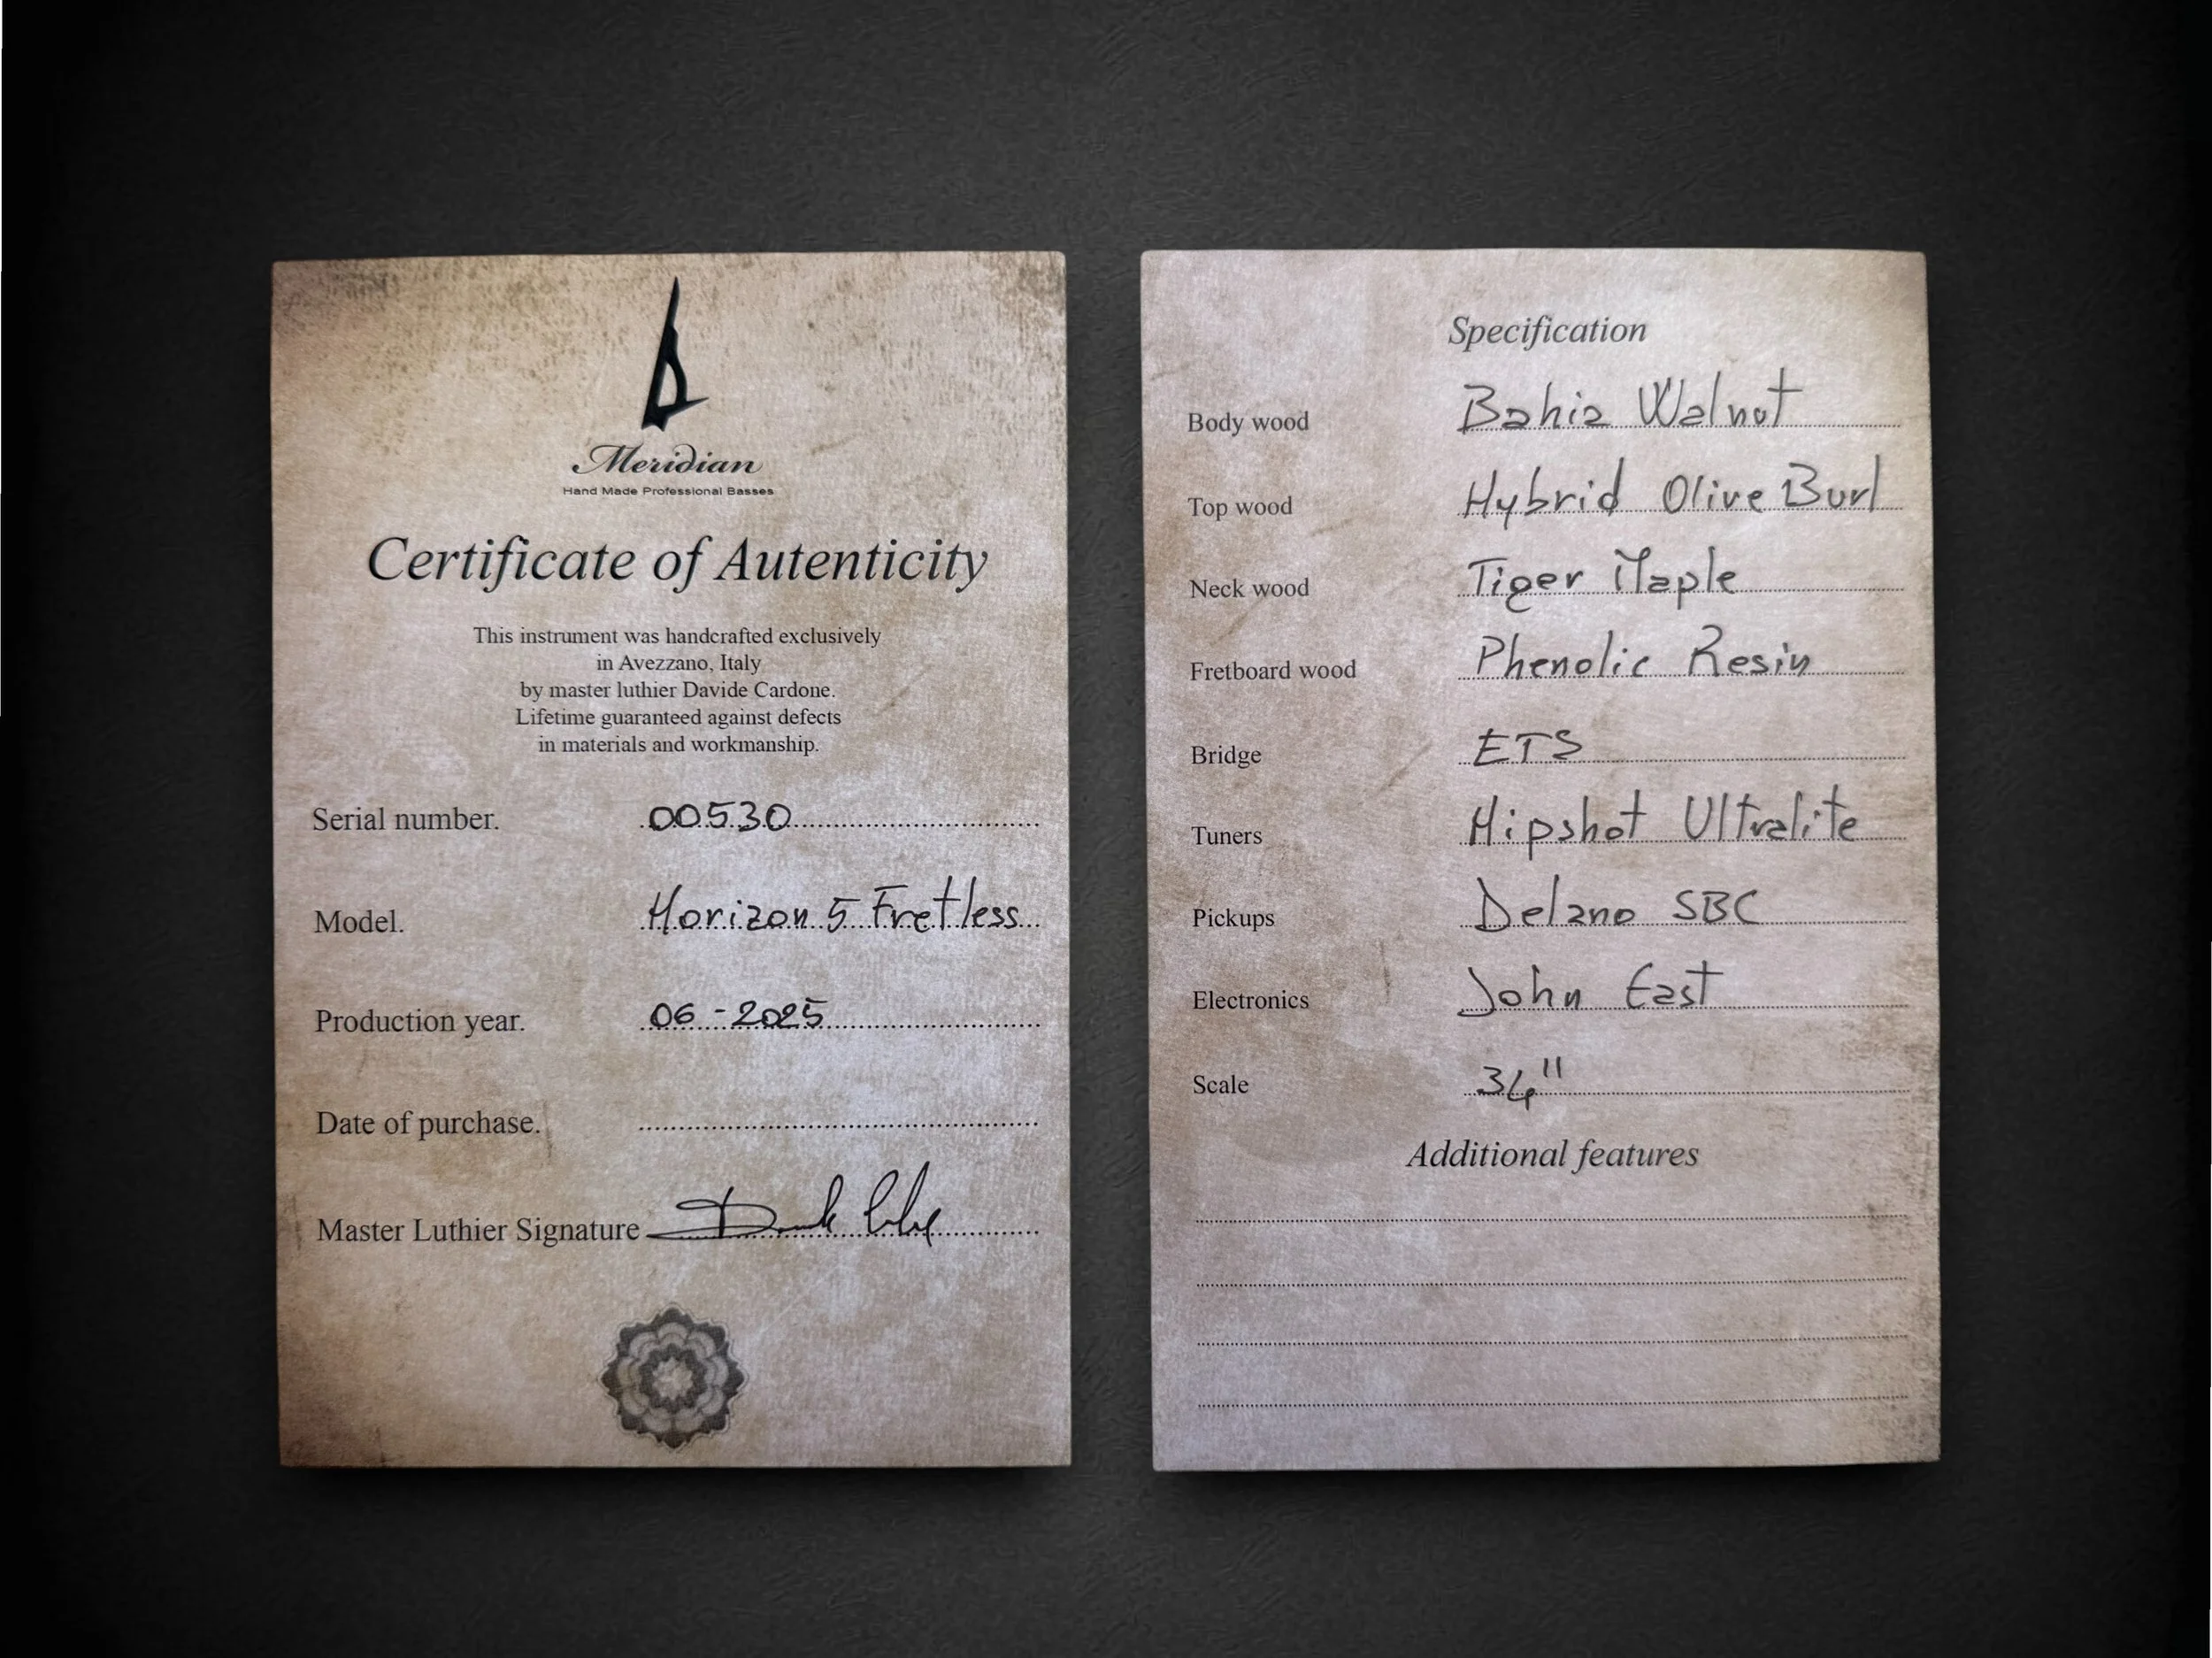 Meridian
Hand Made Professional Basses
Certificate of Autenticity
This instrument was handcrafted exclusively
in Avezzano, Italy
by master luthier Davide Cardone.
Lifetime guaranteed against defects
in materials and workmanship.
Serial number. 00530
Model. Horizon 5 Fretless
Production year. 06 - 2025
Date of purchase.
Master Luthier Signature
Specification
Body wood Bahia Walnut
Top wood Hybrid Olive Burl
Neck wood Tiger Maple
Fretboard wood Phenolic Resin
Bridge ETS
Tuners Hipshot Ultralite
Pickups Delano SBC
Electronics John East
Scale 34"
Additional features